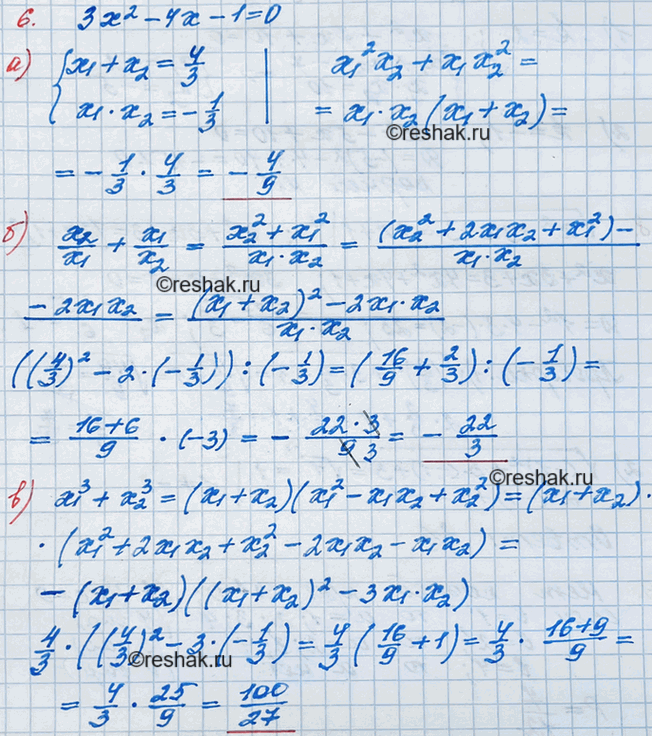 6. 3x² - 4x - 1 = 0
а) { x₁ + x₂ = 4/3 | x₁²x₂ + x₁x₂² =
x₁ · x₂ = -1/3 | = x₁ · x₂ (x₁ + x₂) =
©reshak.ru
= - 1/3 · 4/3 = - 4/9
б) x₂/x₁ + x₁/x₂ = (x₂² + x₁²)/(x₁ · x₂) = ((x₂² + 2x₁x₂ + x₁²) -)/(x₁ · x₂)
©reshak.ru
(- 2x₁x₂)/ = ((x₁ + x₂)² - 2x₁ · x₂)/(x₁ · x₂)
((4/3)² - 2 · (-1/3)) : (-1/3) = (16/9 + 2/3) : (-1/3) =
= (16+6)/9 · (-3) = - (22 · 3)/(9 3) = - 22/3
©reshak.ru
в) x₁³ + x₂³ = (x₁ + x₂)(x₁² - x₁x₂ + x₂²) = (x₁ + x₂) ·
· (x₁² + 2x₁x₂ + x₂² - 2x₁x₂ - x₁x₂) =
- (x₁ + x₂)((x₁ + x₂)² - 3x₁ · x₂)
4/3 · ((4/3)² - 3 · (-1/3) = 4/3 (16/9 + 1) = 4/3 · (16+9)/9 =
©reshak.ru
= 4/3 · 25/9 = 100/27